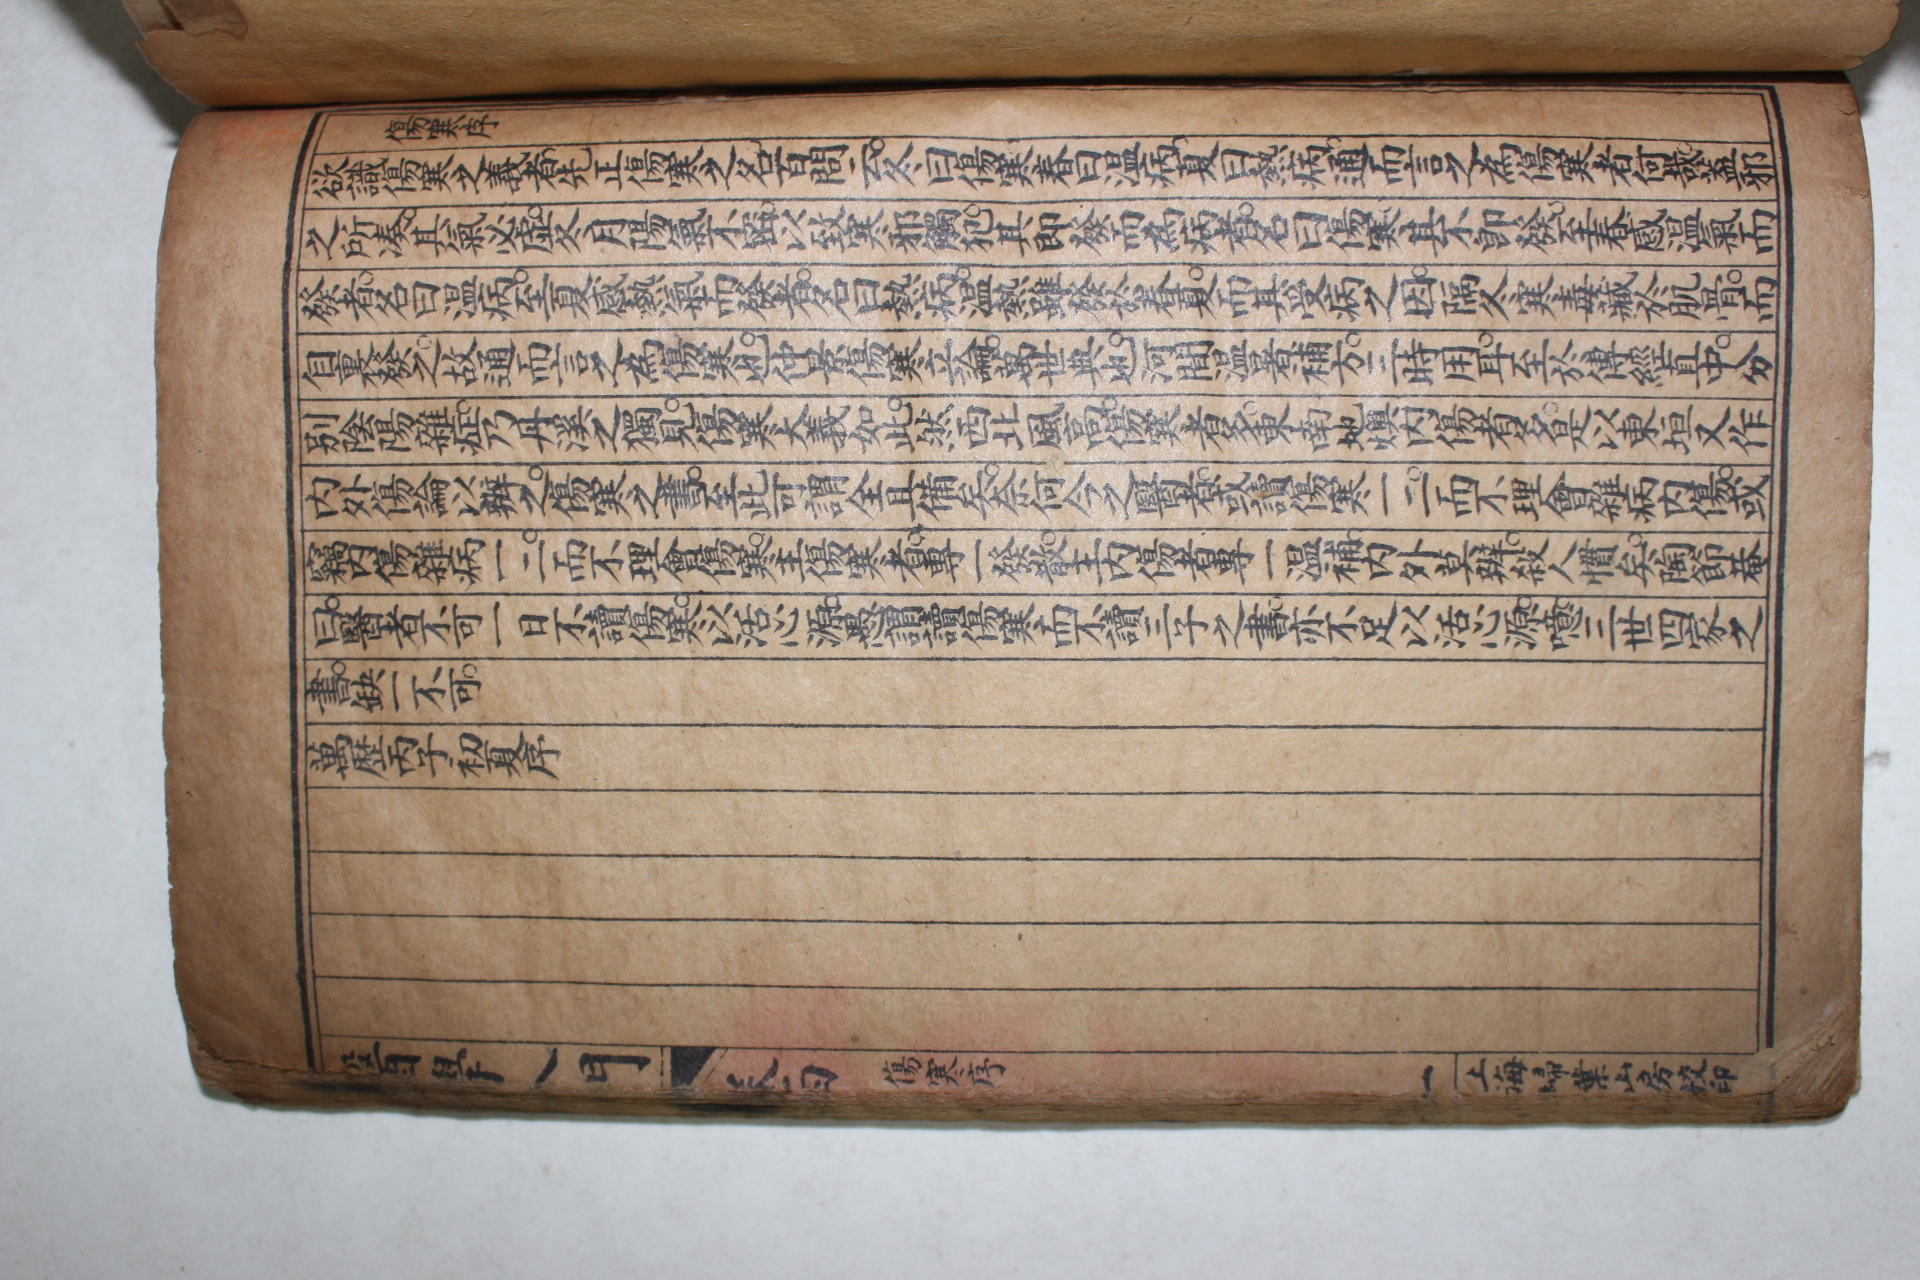 傷寒序
欲識傷寒之義者先正傷寒之名百問云冬曰傷寒春曰温病夏曰熱病通而言之為傷寒者何哉蓋邪
之所凑其氣必虚冬月陽氣不密以致寒邪觸犯其即發而為病者名曰傷寒其不即發至春感温氣而
發者名曰温病至夏感熱氣而發者名曰熱病温熱雖發於春夏而其受病之因隔冬寒毒藏於肌骨而
自裏發之故通而言之為傷寒也仲景傷寒立論萬世典也河間温暑補方三時用耳至於傳經直中分
别陰陽雜症乃丹溪之獨見傷寒大義如此然西北風高傷寒者多東南地燠内傷者多是以東垣又作
内外傷論以辨之傷寒之書至此可謂全且備矣奈何今之醫者或讀傷寒一二而不理會雜病内傷或
竊内傷雜病一二而不理會傷寒主傷寒者專一發散主内傷者專一温補内外莫辨殺人慣矣陶節菴
曰醫者不可一日不讀傷寒以活心源愚謂讀傷寒而不讀三子之書亦不足以活心源噫三世四家之
書缺一不可
萬歷丙子初夏序
醫學入門
傷寒序
一
上海掃葉山房校印